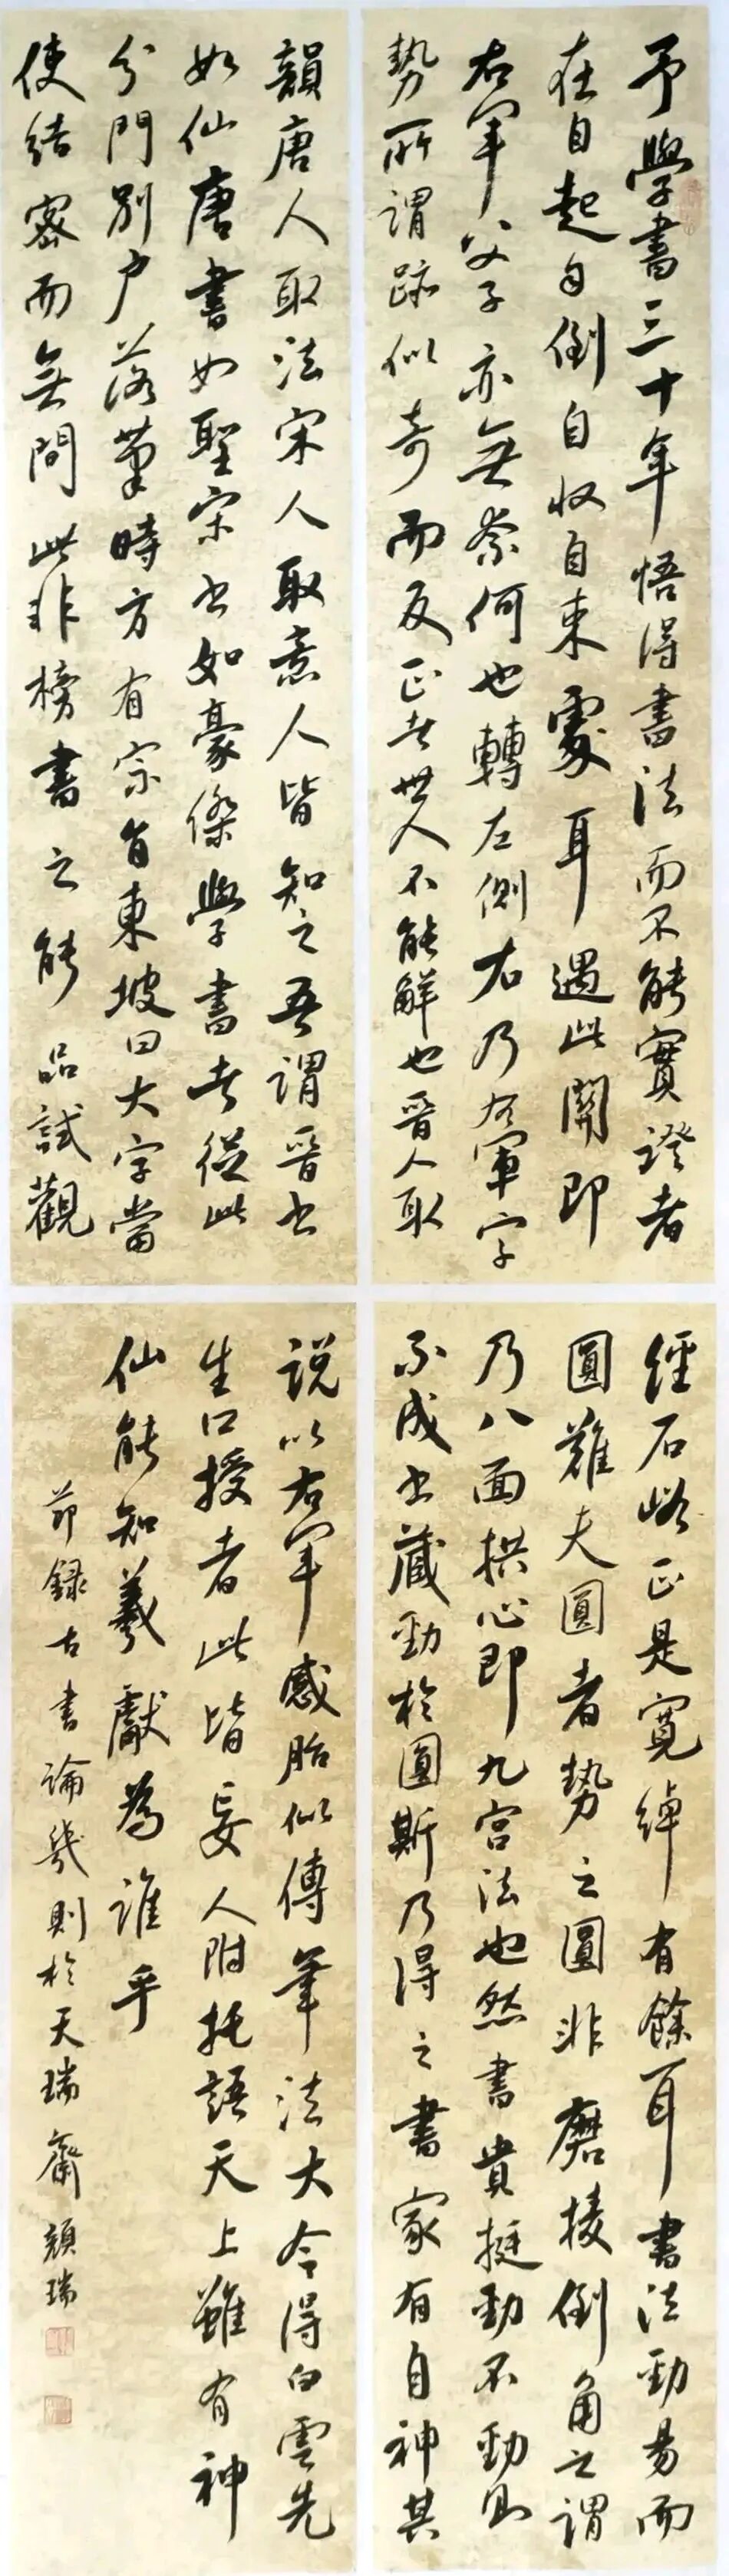 予學書三十年悟得書法而不能實證者
在自起自倒自收自束處耳過此關即
右軍父子亦無奈何也轉左側右乃右軍字
勢所謂跡似奇而反正者世人不能解也晉人取
韻唐人取法宋人取意人皆知之吾謂晉書
如仙唐書如聖宋書如豪傑學書者從此
分門別戶落筆時方有宗旨東坡曰大字當
使結密而無間此非榜書之能品試觀
經石峪正是寬綽有餘耳書法勁易而
圓難夫圓者勢之圓非磨棱倒角之謂
乃八面拱心即九宮法也然書貴挺勁不勁則
不成書藏勁於圓斯乃得之書家有自神其
說以右軍感胎似傳筆法大令得白雲先
生口授者此皆妄人附托語天上雖有神
仙能知羲獻為誰乎
節錄古書論幾則於天瑞齋 顏瑞